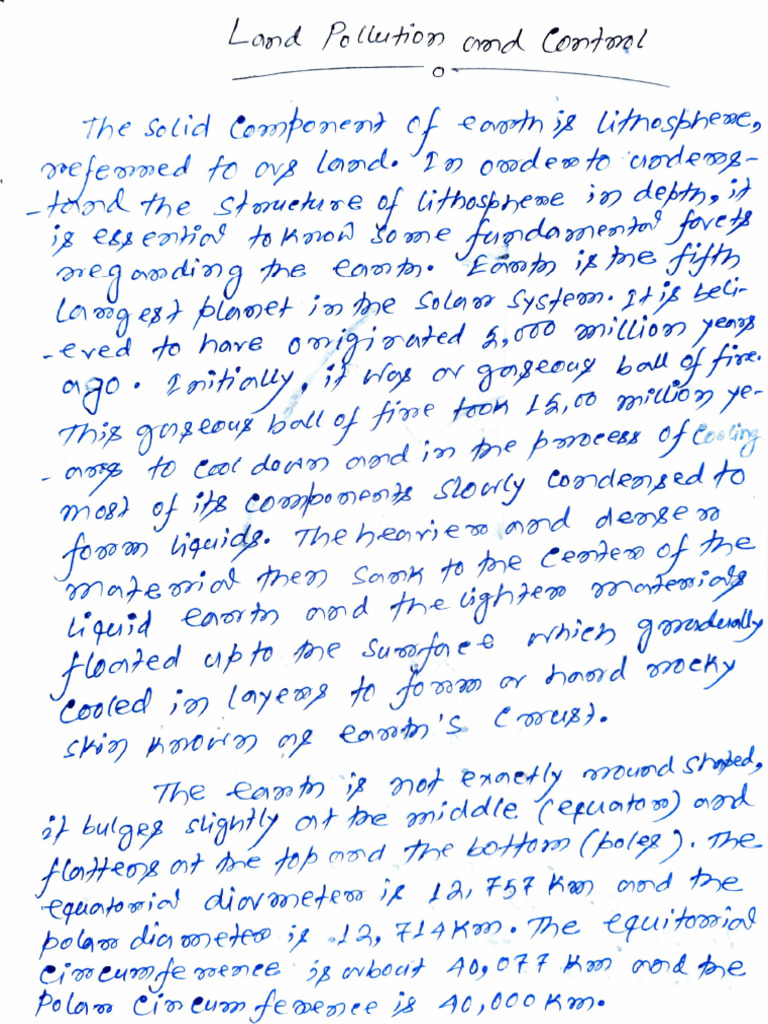 Land Pollution and Control
The solid component of earth is lithosphere,
referred to as land. In order to unders-
-tand the structure of lithosphere in depth, it
is essential to know some fundamental facts
regarding the earth. Earth is the fifth
largest planet in the solar system. It is beli-
-eved to have originated 5,000 million years
ago. Initially, it was a gaseous ball of fire.
This gaseous ball of fire took 15,00 million ye-
-ars to cool down and in the process of cooling
most of its components slowly condensed to
form liquids. The heavier and denser
material then sank to the center of the
liquid earth and the lighter materials
floated up to the surface which gradually
cooled in layers to form a hard rocky
skin known as earth's crust.
The earth is not exactly round shaped,
it bulges slightly at the middle (equator) and
flattens at the top and the bottom (poles). The
equatorial diameter is 12,757 Km and the
polar diameter is 12,714 Km. The equitorial
circumference is about 40,077 Km and the
Polar circumference is 40,000 Km.